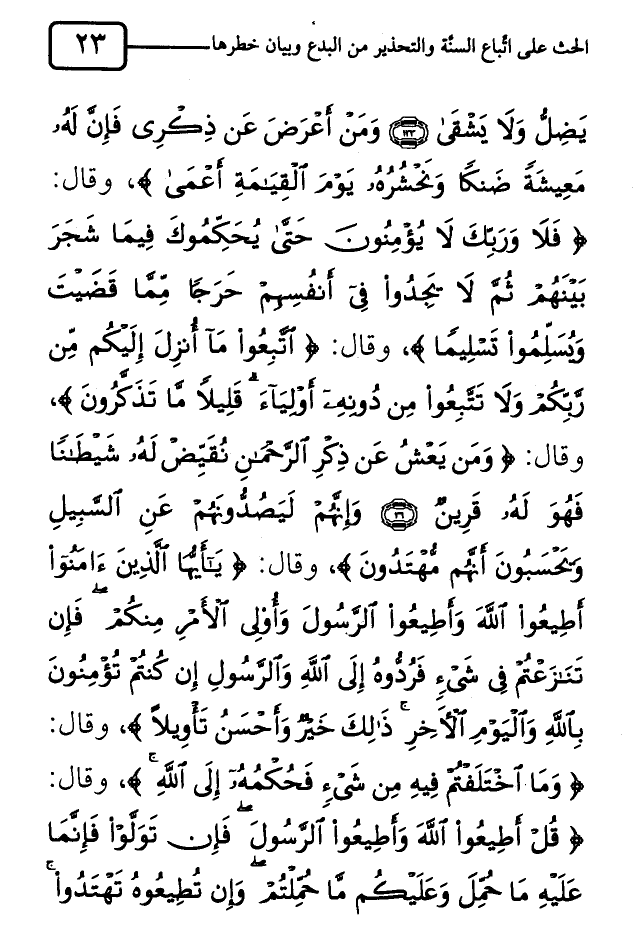 الحث على اتّباع السنّة والتحذير من البدع وبيان خطرها ٢٣
يَضِلُّ وَلَا يَشْقَىٰ ﴿١٢٣﴾ وَمَنْ أَعْرَضَ عَن ذِكْرِى فَإِنَّ لَهُۥ
مَعِيشَةً ضَنكًا وَنَحْشُرُهُۥ يَوْمَ ٱلْقِيَـٰمَةِ أَعْمَىٰ ﴾، وقال:
﴿ فَلَا وَرَبِّكَ لَا يُؤْمِنُونَ حَتَّىٰ يُحَكِّمُوكَ فِيمَا شَجَرَ
بَيْنَهُمْ ثُمَّ لَا يَجِدُوا۟ فِىٓ أَنفُسِهِمْ حَرَجًا مِّمَّا قَضَيْتَ
وَيُسَلِّمُوا۟ تَسْلِيمًا ﴾، وقال: ﴿ ٱتَّبِعُوا۟ مَآ أُنزِلَ إِلَيْكُم مِّن
رَّبِّكُمْ وَلَا تَتَّبِعُوا۟ مِن دُونِهِۦٓ أَوْلِيَآءَ ۗ قَلِيلًا مَّا تَذَكَّرُونَ ﴾،
وقال: ﴿ وَمَن يَعْشُ عَن ذِكْرِ ٱلرَّحْمَـٰنِ نُقَيِّضْ لَهُۥ شَيْطَـٰنًا
فَهُوَ لَهُۥ قَرِينٌ ﴿٣٦﴾ وَإِنَّهُمْ لَيَصُدُّونَهُمْ عَنِ ٱلسَّبِيلِ
وَيَحْسَبُونَ أَنَّهُم مُّهْتَدُونَ ﴾، وقال: ﴿ يَـٰٓأَيُّهَا ٱلَّذِينَ ءَامَنُوٓا۟
أَطِيعُوا۟ ٱللَّهَ وَأَطِيعُوا۟ ٱلرَّسُولَ وَأُو۟لِى ٱلْأَمْرِ مِنكُمْ ۖ فَإِن
تَنَـٰزَعْتُمْ فِى شَىْءٍ فَرُدُّوهُ إِلَى ٱللَّهِ وَٱلرَّسُولِ إِن كُنتُمْ تُؤْمِنُونَ
بِٱللَّهِ وَٱلْيَوْمِ ٱلْـَٔاخِرِ ۚ ذَٰلِكَ خَيْرٌ وَأَحْسَنُ تَأْوِيلًا ﴾، وقال:
﴿ وَمَا ٱخْتَلَفْتُمْ فِيهِ مِن شَىْءٍ فَحُكْمُهُۥٓ إِلَى ٱللَّهِ ۚ ﴾، وقال:
﴿ قُلْ أَطِيعُوا۟ ٱللَّهَ وَأَطِيعُوا۟ ٱلرَّسُولَ ۖ فَإِن تَوَلَّوْا۟ فَإِنَّمَا
عَلَيْهِ مَا حُمِّلَ وَعَلَيْكُم مَّا حُمِّلْتُمْ ۖ وَإِن تُطِيعُوهُ تَهْتَدُوا۟ ۚ